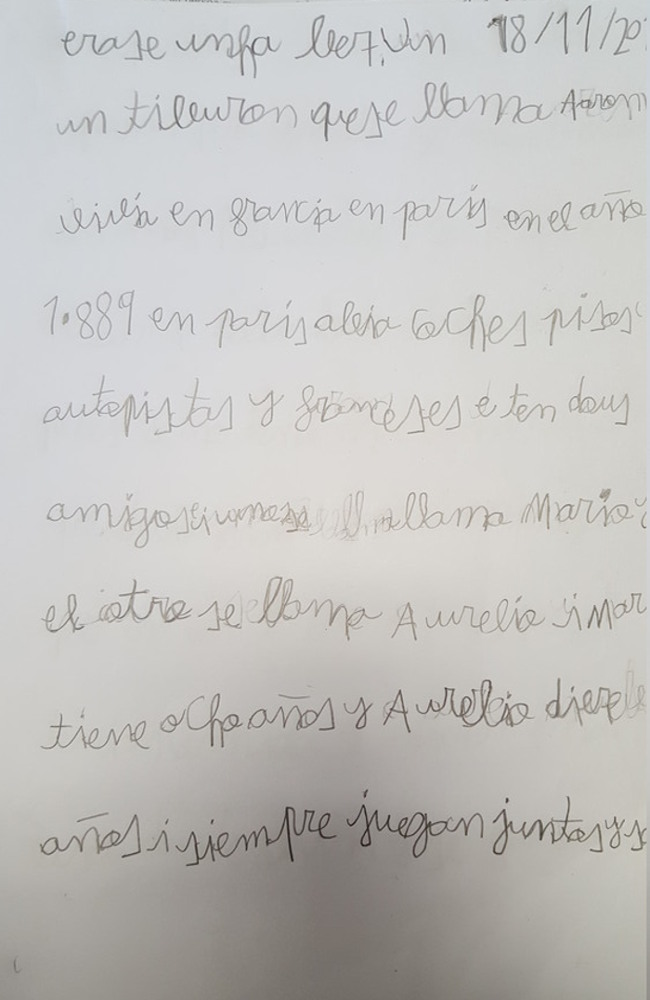 erase unha bez, Un 18/11/20
un tileuron quese llama Aaron
vivía en francia en parís en el año
1.889 en parís abia coches pisos
autopistas y franceses e ten dous
amigos i llama Mario
el otro se llama Aurelio i Mar
tiene ocho años y Aurelio
años i siempre juegan juntos y s